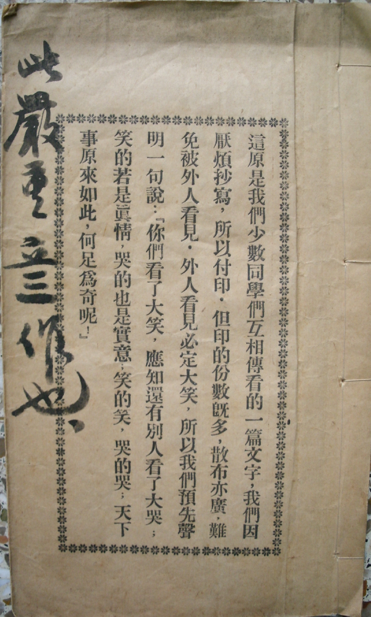 這原是我們少數同學們互相傳看的一篇文字，我們因
厭煩抄寫，所以付印．但印的份數旣多，散布亦廣，難
免被外人看見．外人看見必定大笑，所以我們預先聲
明一句說：『你們看了大笑，應知還有別人看了大哭；
笑的若是眞情，哭的也是實意；笑的笑，哭的哭；天下
事原來如此，何足爲奇呢！』
此嚴重立三作也、